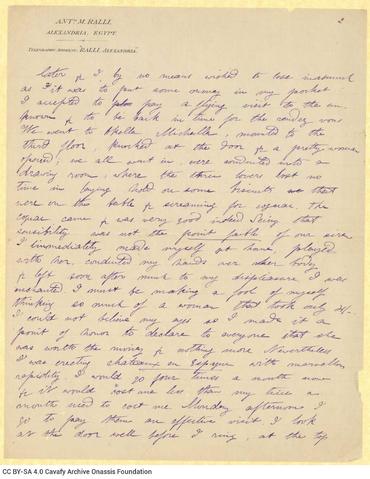 2
ANT^S. M. RALLI.
ALEXANDRIA, EGYPT.
TELEGRAPHIC ADDRESS: "RALLI, ALEXANDRIA".
later & I by no means wished to lose inasmuch
as it was to put some money in my pocket
I accepted to pay a flying visit to the un-
known & to be back in time for the rendez vous
We went to mounted to the
third floor, knocked at the door & a pretty woman
opened; we all went in, were conducted into a
drawing room, where the three lovers lost no
time in laying hold on some biscuits that
were on the table & screaming for cognac. The
cognac came & was very good indeed. Seing that
sensibility was not the point faible of our
I immediately made myself at home, played
with her, conducted my hands over her body
& left soon after much to my displeasure I was
enchanted I must be making a fool of myself
thinking so much of a woman that took only
I could not believe my eyes so I made it a
point of honor to declare to everyone that she
was worth the money & nothing more Nevertheless
I was erecting chateaux en Espagne with marvellous
rapidity I would go four times a month now
& it would cost me less than my twice a
month used to cost me Monday afternoon I
go to pay them an effective visit I look
at the door well before I ring, at the top
CC BY-SA 4.0 Cavafy Archive Onassis Foundation